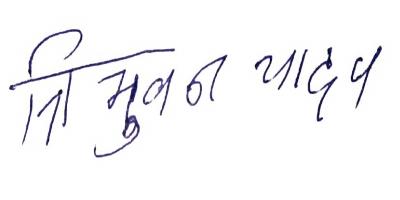 त्रिभुवन यादव